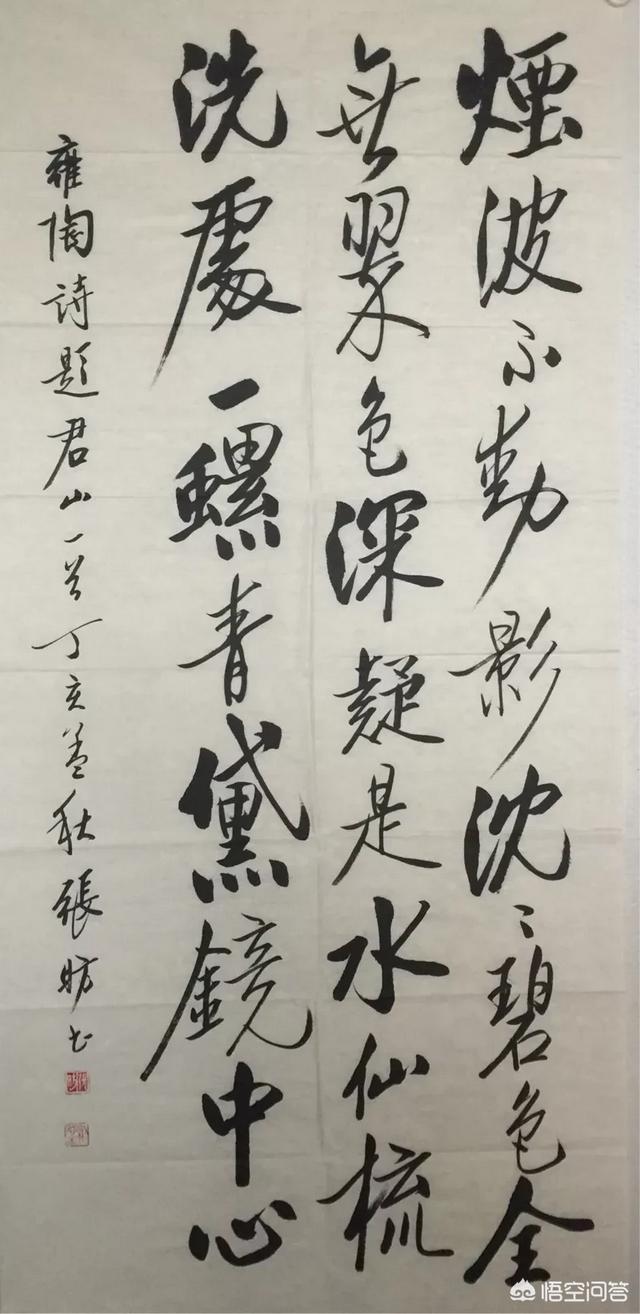 煙波不動影沈〻碧色全
無翠色深疑是水仙梳
洗處一螺青黛鏡中心
雍陶詩題君山一首丁亥孟秋張昉书
悟空问答